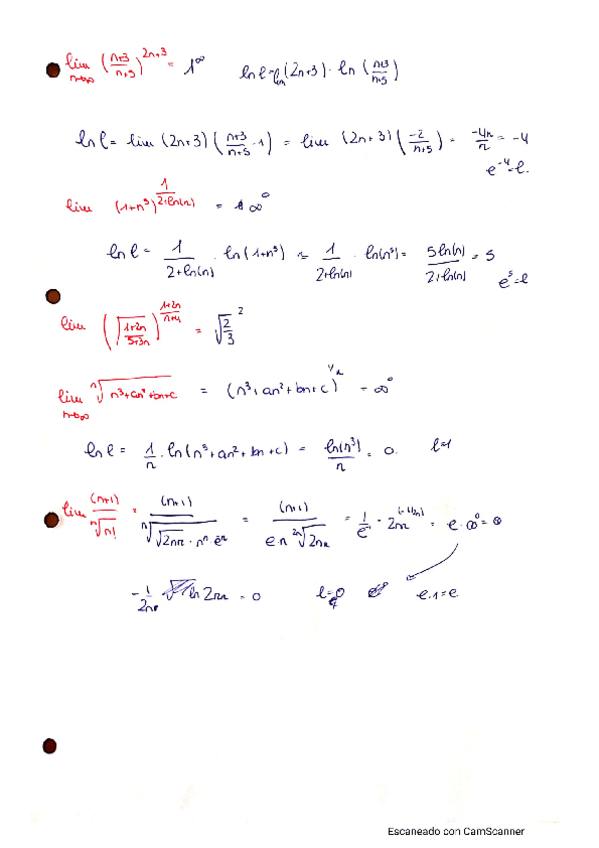 lim n→∞ ((n+3)/(n+5))^(2n+3) = 1^∞   ln l = lim (2n+3) · ln ((n+3)/(n+5))
ln l = lim (2n+3) ((n+3)/(n+5) - 1) = lim (2n+3) (-2/(n+5)) = -4n/n = -4
e^-4 = l.
lim (1+n^5)^(1/(2+ln(n))) = ∞^0
ln l = 1/(2+ln(n)) · ln(1+n^5) ≈ 1/(2+ln(n)) · ln(n^5) = 5ln(n)/(2+ln(n)) = 5
e^5 = l
lim (√((1+2n)/(5+3n)))^((1+2n)/(n+4)) = √(2/3)^2
lim n→∞ ⁿ√(n^3+an^2+bn+c) = (n^3+an^2+bn+c)^(1/n) = ∞^0
ln l = 1/n · ln(n^3+an^2+bn+c) = ln(n^3)/n = 0.   l=1
lim (n+1)/ⁿ√(n!) = (n+1)/ⁿ√(√(2nπ) · n^n · e^-n) = (n+1)/(e · n ²ⁿ√(2nπ)) = 1/e^-1 · 2nπ^(-1/2n) = e · ∞^0 =
-1/2n ln 2πn = 0   e.1 = e
Escaneado con CamScanner